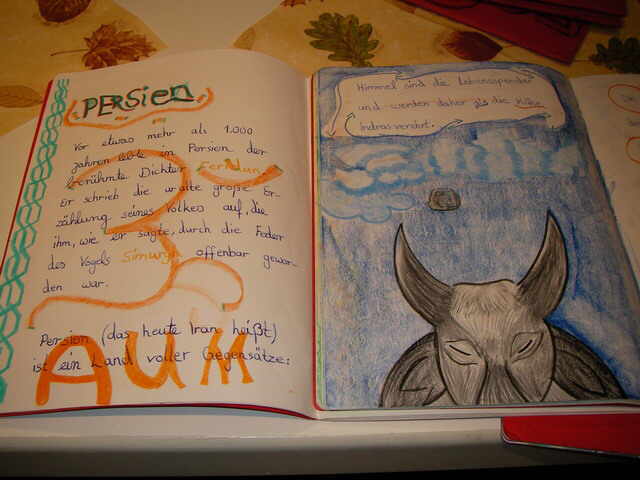 PERSIEN
Vor etwas mehr als 1.000
Jahren lebte in Persien der
berühmte Dichter Feridun.
Er schrieb die uralte große Er-
zählung seines Volkes auf, die
ihm, wie er sagte, durch die Feder
des Vogels Simurgh offenbar gewor-
den war.
Persien (das heute Iran heißt)
ist ein Land voller Gegensätze:
AUM
Himmel sind die Lebensspender
und werden daher als die Kühe
Indras verehrt.